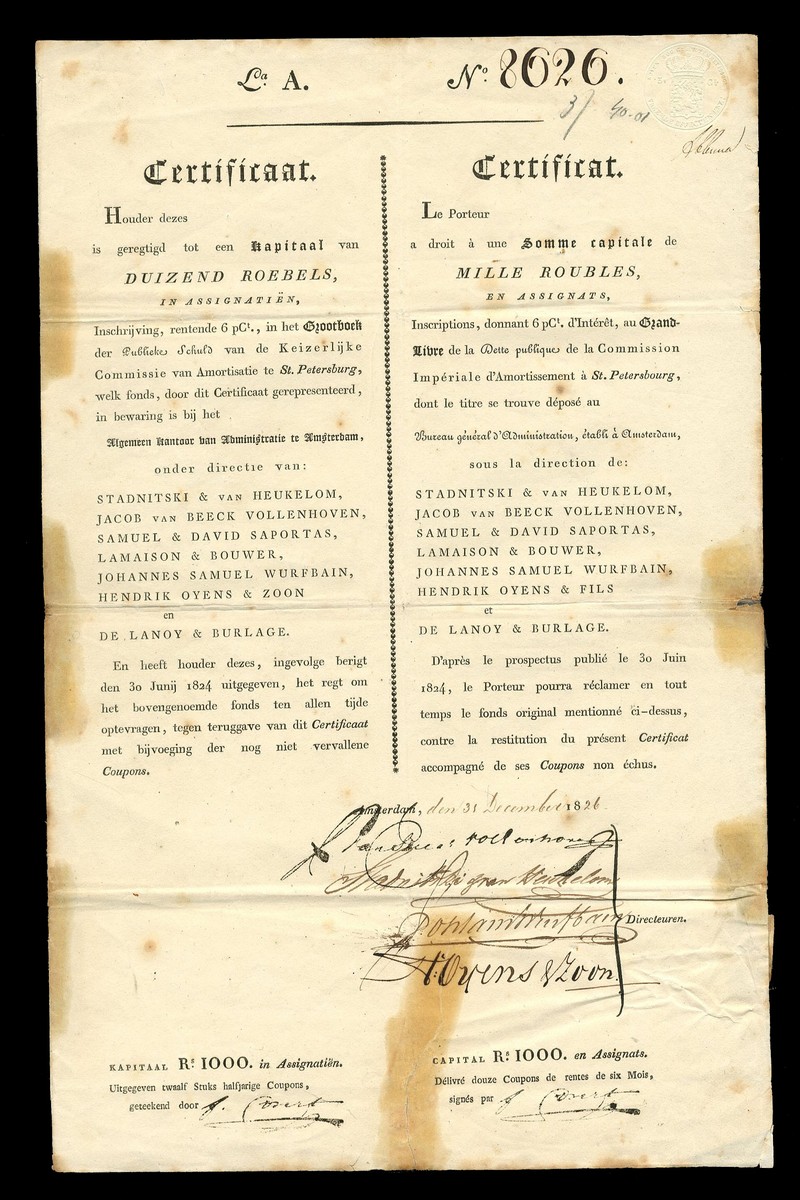 Lᵃ A.
Nº 8626.
37 40-01
Certificaat.
Houder dezes
is geregtigd tot een Kapitaal van
DUIZEND ROEBELS,
IN ASSIGNATIËN,
Inschrijving, rentende 6 pCᵗ., in het Grootboek
der Publieke Schuld van de Keizerlijke
Commissie van Amortisatie te St. Petersburg,
welk fonds, door dit Certificaat gerepresenteerd,
in bewaring is bij het
Algemeen Kantoor van Administratie te Amsterdam,
onder directie van:
STADNITSKI & VAN HEUKELOM,
JACOB VAN BEECK VOLLENHOVEN,
SAMUEL & DAVID SAPORTAS,
LAMAISON & BOUWER,
JOHANNES SAMUEL WURFBAIN,
HENDRIK OYENS & ZOON
en
DE LANOY & BURLAGE.
En heeft houder dezes, ingevolge berigt
den 30 Junij 1824 uitgegeven, het regt om
het bovengenoemde fonds ten allen tijde
optevragen, tegen teruggave van dit Certificaat
met bijvoeging der nog niet vervallene
Coupons.
Certificat.
Le Porteur
a droit à une Somme capitale de
MILLE ROUBLES,
EN ASSIGNATS,
Inscriptions, donnant 6 pCᵗ. d'Intérêt, au Grand-
Livre de la Dette publique de la Commission
Impériale d'Amortissement à St. Petersbourg,
dont le titre se trouve déposé au
Bureau général d'Administration, établi à Amsterdam,
sous la direction de:
STADNITSKI & VAN HEUKELOM,
JACOB VAN BEECK VOLLENHOVEN,
SAMUEL & DAVID SAPORTAS,
LAMAISON & BOUWER,
JOHANNES SAMUEL WURFBAIN,
HENDRIK OYENS & FILS
et
DE LANOY & BURLAGE.
D'après le prospectus publié le 30 Juin
1824, le Porteur pourra réclamer en tout
temps le fonds original mentionné ci-dessus,
contre la restitution du présent Certificat
accompagné de ses Coupons non échus.
Amsterdam, den 31 December 1826
J van Beeck Vollenhoven
Stadnitski & van Heukelom
Joh Sam Wurfbain
Directeuren.
H: Oyens & Zoon
KAPITAAL Rˢ. 1000. in Assignatiën.
Uitgegeven twaalf Stuks halfjarige Coupons,
geteekend door
CAPITAL Rˢ. 1000. en Assignats.
Délivré douze Coupons de rentes de six Mois,
signés par